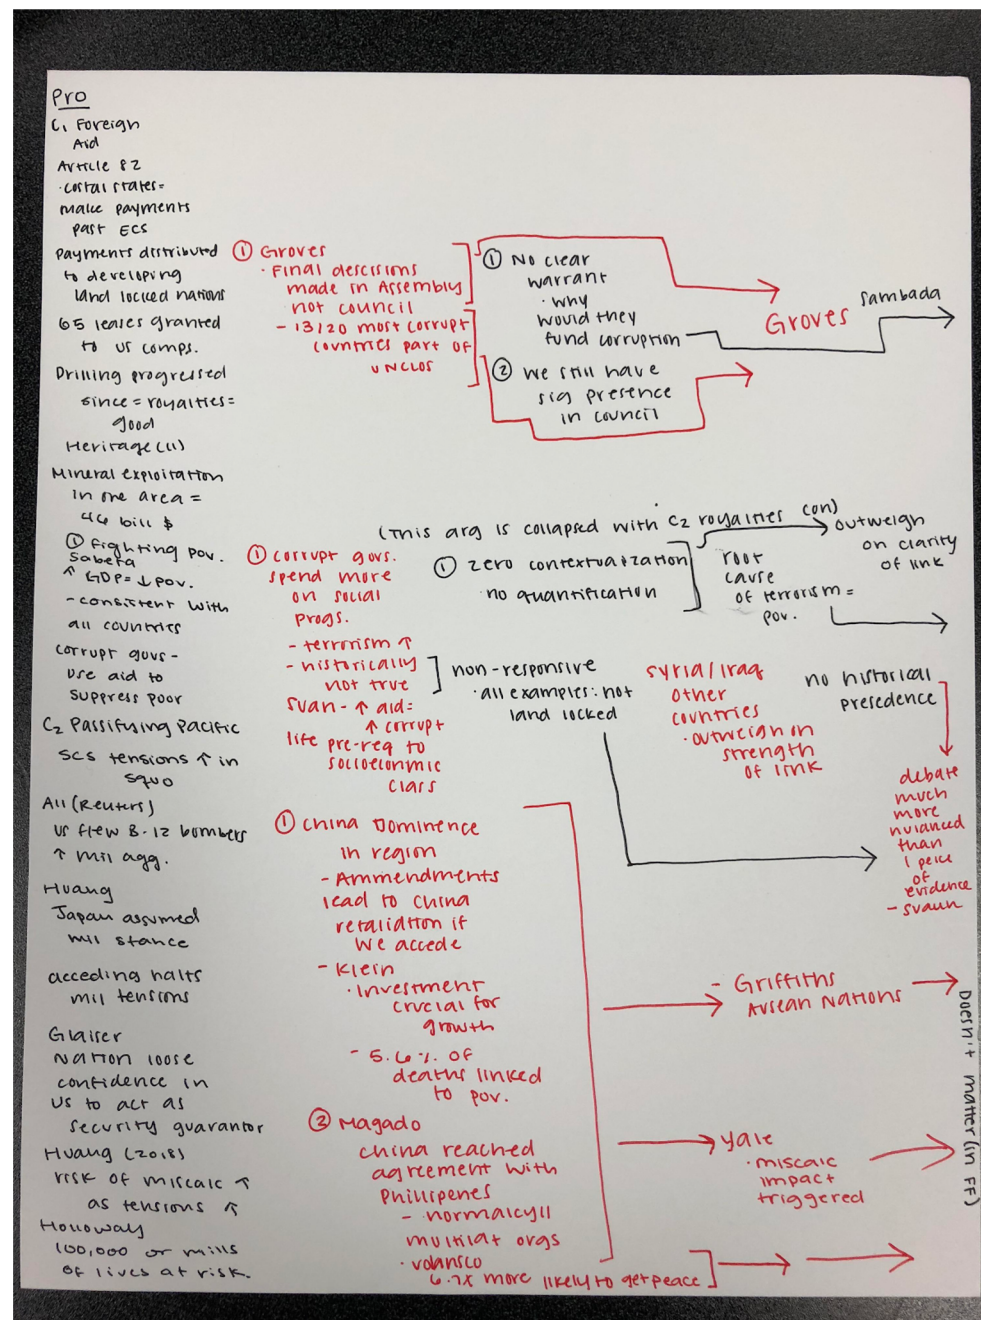 Pro
C1 Foreign
Aid
Article 82
·costal states=
make payments
past ECS
Payments distributed
to developing
land locked nations
65 leases granted
to us comps.
Drilling progressed
since = royalties =
good
Heritage (11)
Mineral exploitation
in one area =
46 bill $
① fighting pov.
Sabeta
↑ GDP = ↓ pov.
- consistent with
all countries
corrupt govs -
use aid to
suppress poor
C2 Passifying Pacific
SCS tensions ↑ in
squo
All (Reuters)
US flew B-12 bombers
↑ mil agg.
Huang
Japan assumed
mil stance
acceding halts
mil tensions
Glaiser
Nation loose
confidence in
US to act as
security guarantor
Huang (2018)
risk of miscalc ↑
as tensions ↑
Holloway
100,000 or mills
of lives at risk.
① Groves
· Final descisions
made in Assembly
not council
- 13/20 most corrupt
countries part of
UNCLOS
① No clear
warrant
· why
would they
fund corruption
② we still have
sig presence
in council
Groves
Sambada
(This arg is collapsed with C2 royalties con)
① corrupt govs.
spend more
on social
progs.
- terrorism ↑
- historically
not true
Svan - ↑ aid =
↑ corrupt
life pre-req to
socioeconmic
class
① zero contextualization
· no quantification
root
cause
of terrorism =
pov.
outweigh
on clarity
of link
non-responsive
· all examples: not
land locked
Syria/Iraq
other
countries
· outweigh on
strength
of link
no historical
presedence
debate
much
more
nuanced
than
1 peice
of
evidence
- svaun
① China Dominence
in region
- Ammendments
lead to China
retalidtion if
we accede
- Klein
· Investment
crucial for
growth
- 5.6% of
deaths linked
to pov.
② Magado
China reached
agreement with
Phillipenes
- normalcy||
multilat orgs
· volansco
6.7x more likely to get peace
- Griffiths
Asean Nations
Yale
· miscalc
impact
triggered
Doesn't matter (in FF)